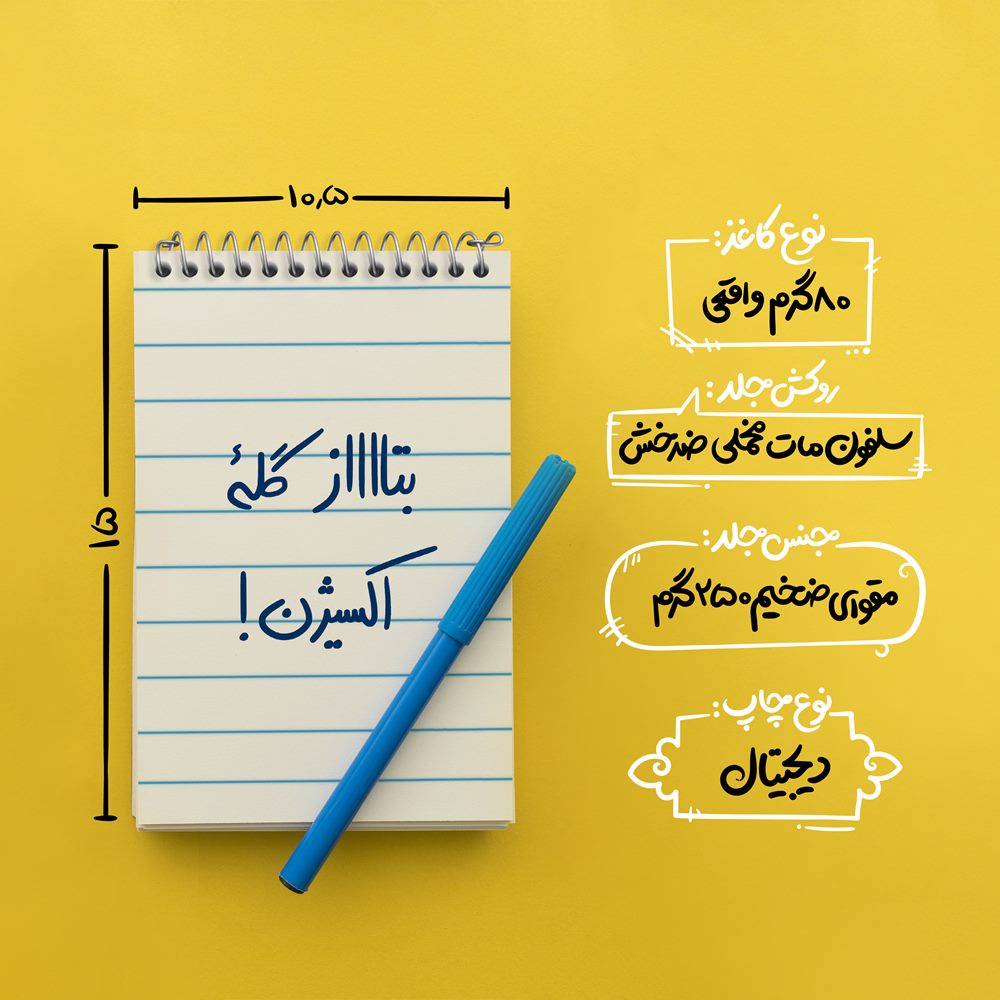 ۱۰٫۵
۱۵
بتااااز گلهٔ
اکسیژن!
نوع کاغذ:
۸۰ گرم واقعی
روکش جلد:
سلفون مات مخملی ضدخش
جنس جلد:
مقوای ضخیم ۲۵۰ گرم
نوع چاپ:
دیجیتال